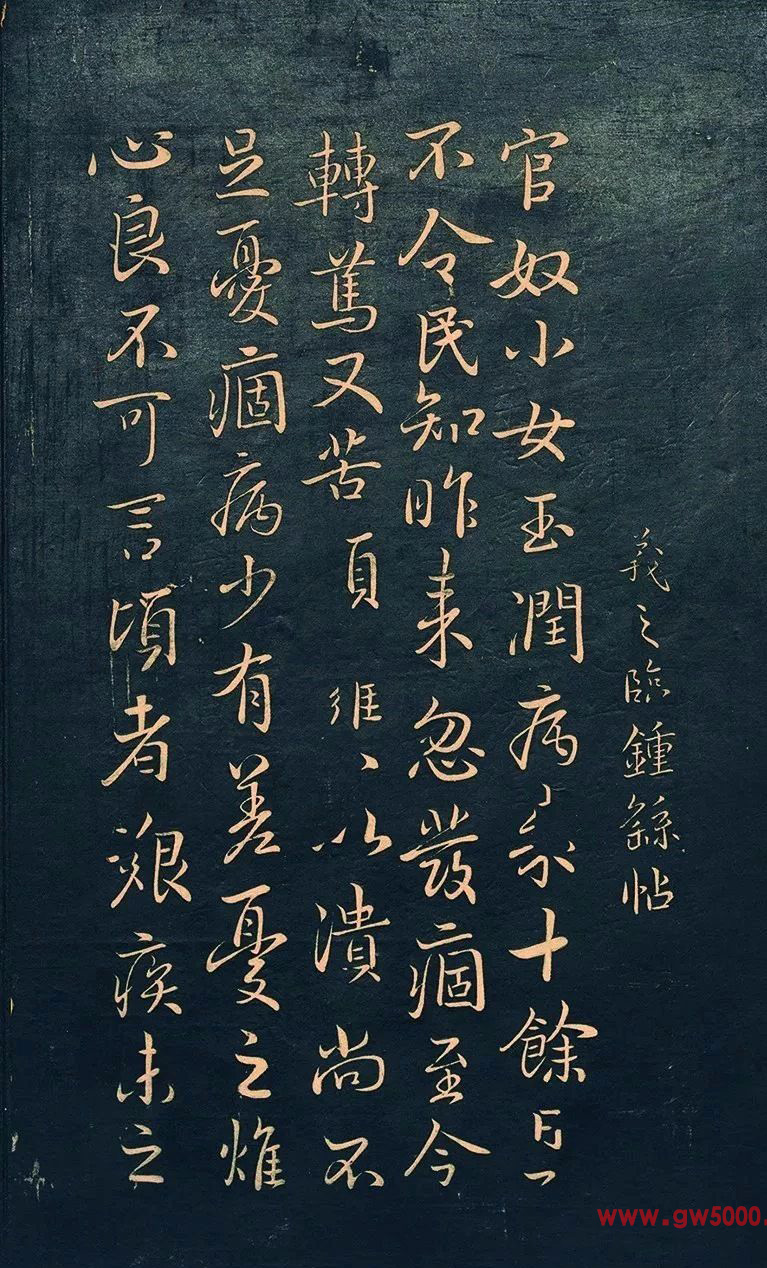 羲之臨鍾繇帖
官奴小女玉潤病十餘日
不令民知昨來忽發痼至今
轉篤又苦頁以潰尚不
足憂痼病少有差憂之燋
心良不可言頃者艱疾未之
www.gw5000.